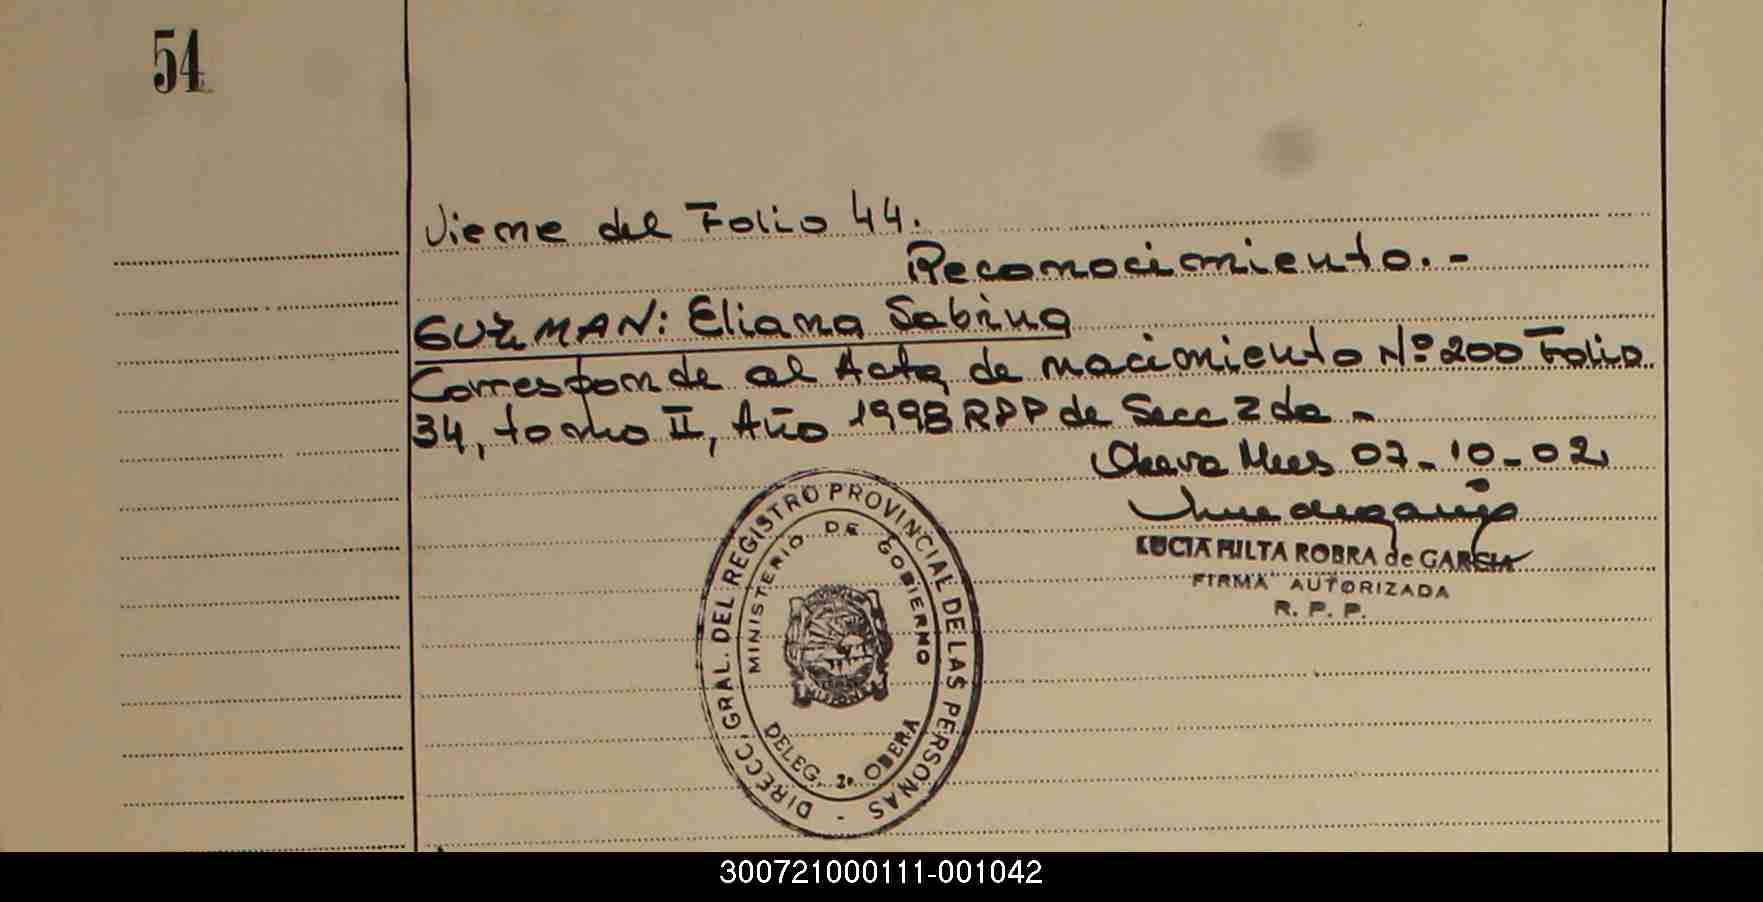 54
Viene del Folio 44.
Reconocimiento.-
GUZMAN: Eliana Sabrina
Corresponde al Acta de nacimiento Nº 200 Folio
34, tomo II, Año 1998 RPP de Secc 2da -
Obera Mnes 07-10-02
LUCIA MILTA ROBRA de GARCIA
FIRMA AUTORIZADA
R. P. P.
DIRECC. GRAL. DEL REGISTRO PROVINCIAL DE LAS PERSONAS -
MINISTERIO DE GOBIERNO
MISIONES
DELEG. 2ª OBERA
300721000111-001042